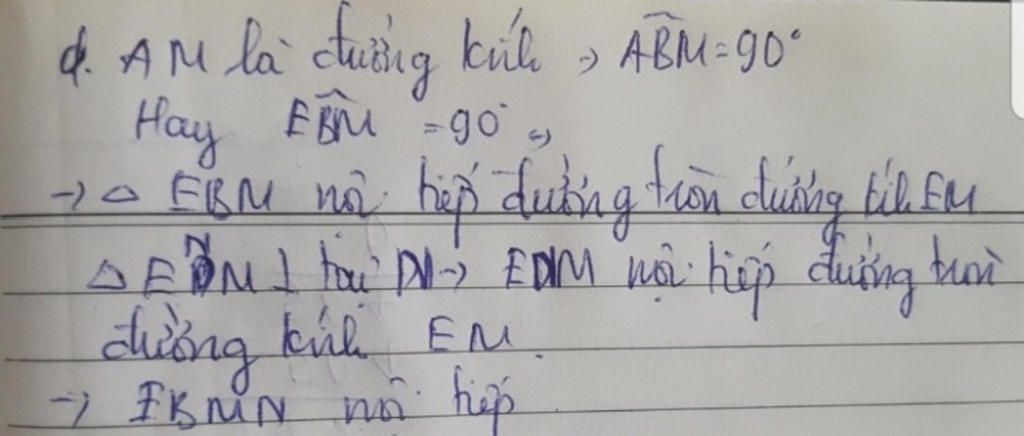 d. AM là đường kính → ABM = 90°
Hay EBM = 90° →
→ △ EBM nội tiếp đường tròn đường kính EM
△ ENM ⊥ tại N → ENM nội tiếp đường tròn
đường kính EM.
→ EBMN nội tiếp